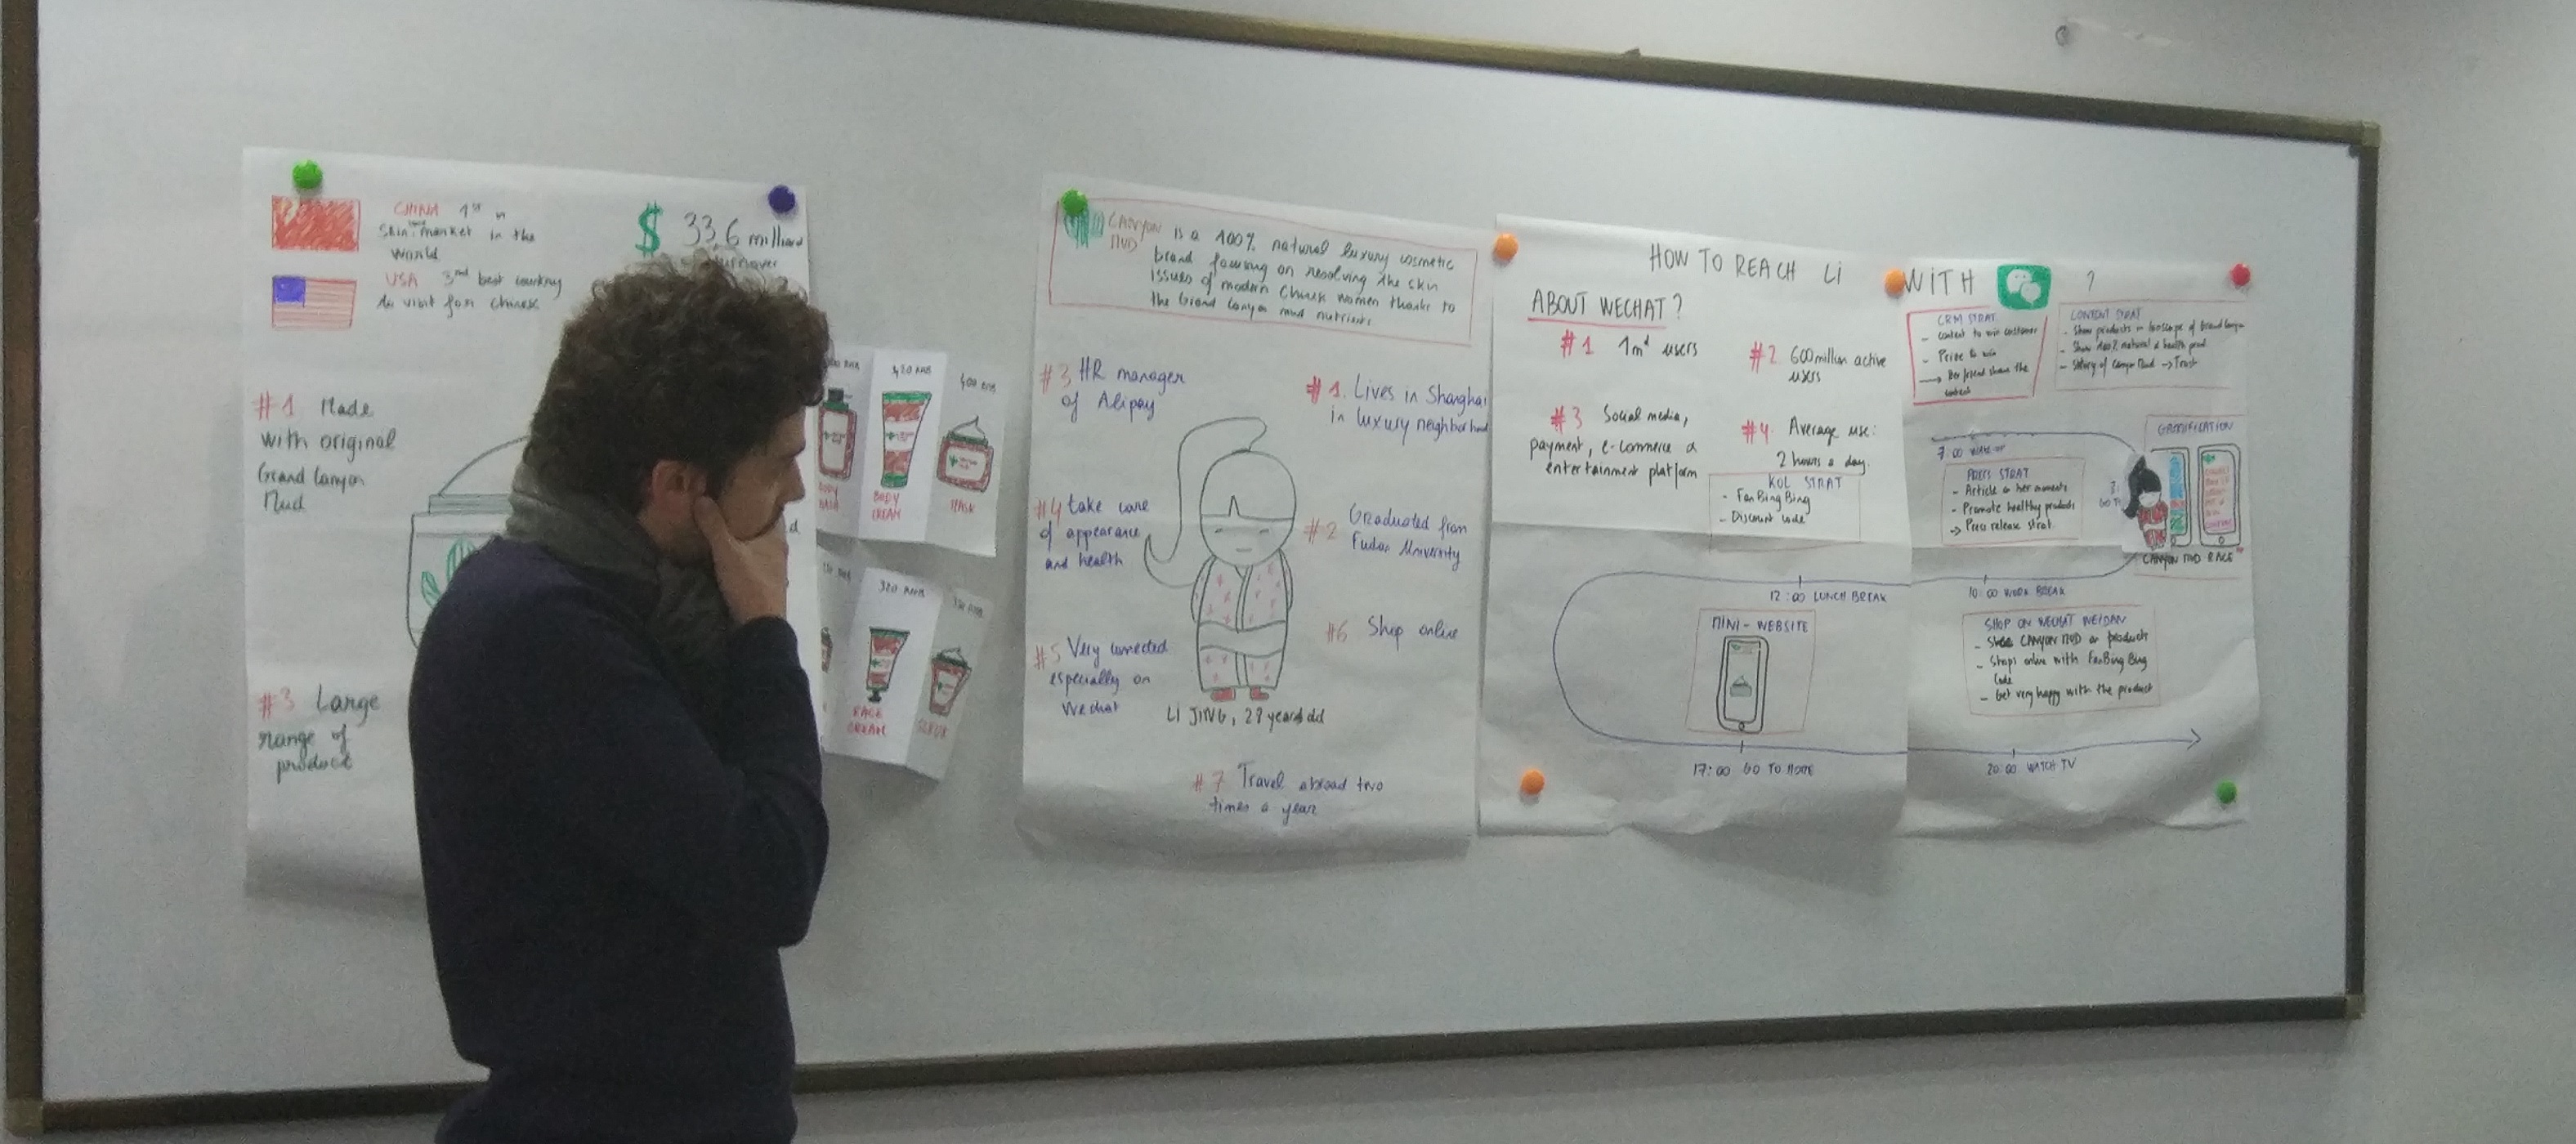 CHINA 1st in
skin market in the
World
USA 3nd best country
to visit for chinese
$ 33,6 milliard
turnover
#1 Made
with original
Grand Canyon
Mud
#3 Large
range of
product
420 RMB
400 RMB
BODY
CREAM
MASK
320 RMB
FACE
CREAM
CANYON
MUD
is a 100% natural luxury cosmetic
brand focusing on resolving the skin
issues of modern Chinese women thanks to
the Grand Canyon mud nutrients
#3 HR manager
of Alipay
#1. Lives in Shanghai
in luxury neighborhood
#4 take care
of appearance
and health
#2 Graduated from
Fudan University
#5 Very connected
especially on
Wechat
#6 Shop online
LI JING, 29 years old
#7 Travel abroad two
times a year
HOW TO REACH Li WITH ?
ABOUT WECHAT?
#1 1md users
#2 600 million active
users
#3 Social media,
payment, e-commerce &
entertainment platform
#4. Average use:
2 hours a day.
KOL STRAT
- Fan Bing Bing
- Discount code
CRM STRAT
- content to win customer
- Prize to win
→ Her friend share the
content
CONTENT STRAT
- Show products in landscape of Grand Canyon
- Show 100% natural & health prod
- Story of Canyon Mud → Trust
7:00 WAKE UP
PRESS STRAT
- Article on her moments
- Promote healthy products
→ Press release strat.
GAMIFICATION
CANYON MUD RACE
12:00 LUNCH BREAK
10:00 WORK BREAK
MINI-WEBSITE
SHOP ON WECHAT WEIDAN
- CANYON MUD products
- Shops online with FanBing Bing
code
- Get very happy with the product
17:00 GO TO HOME
20:00 WATCH TV